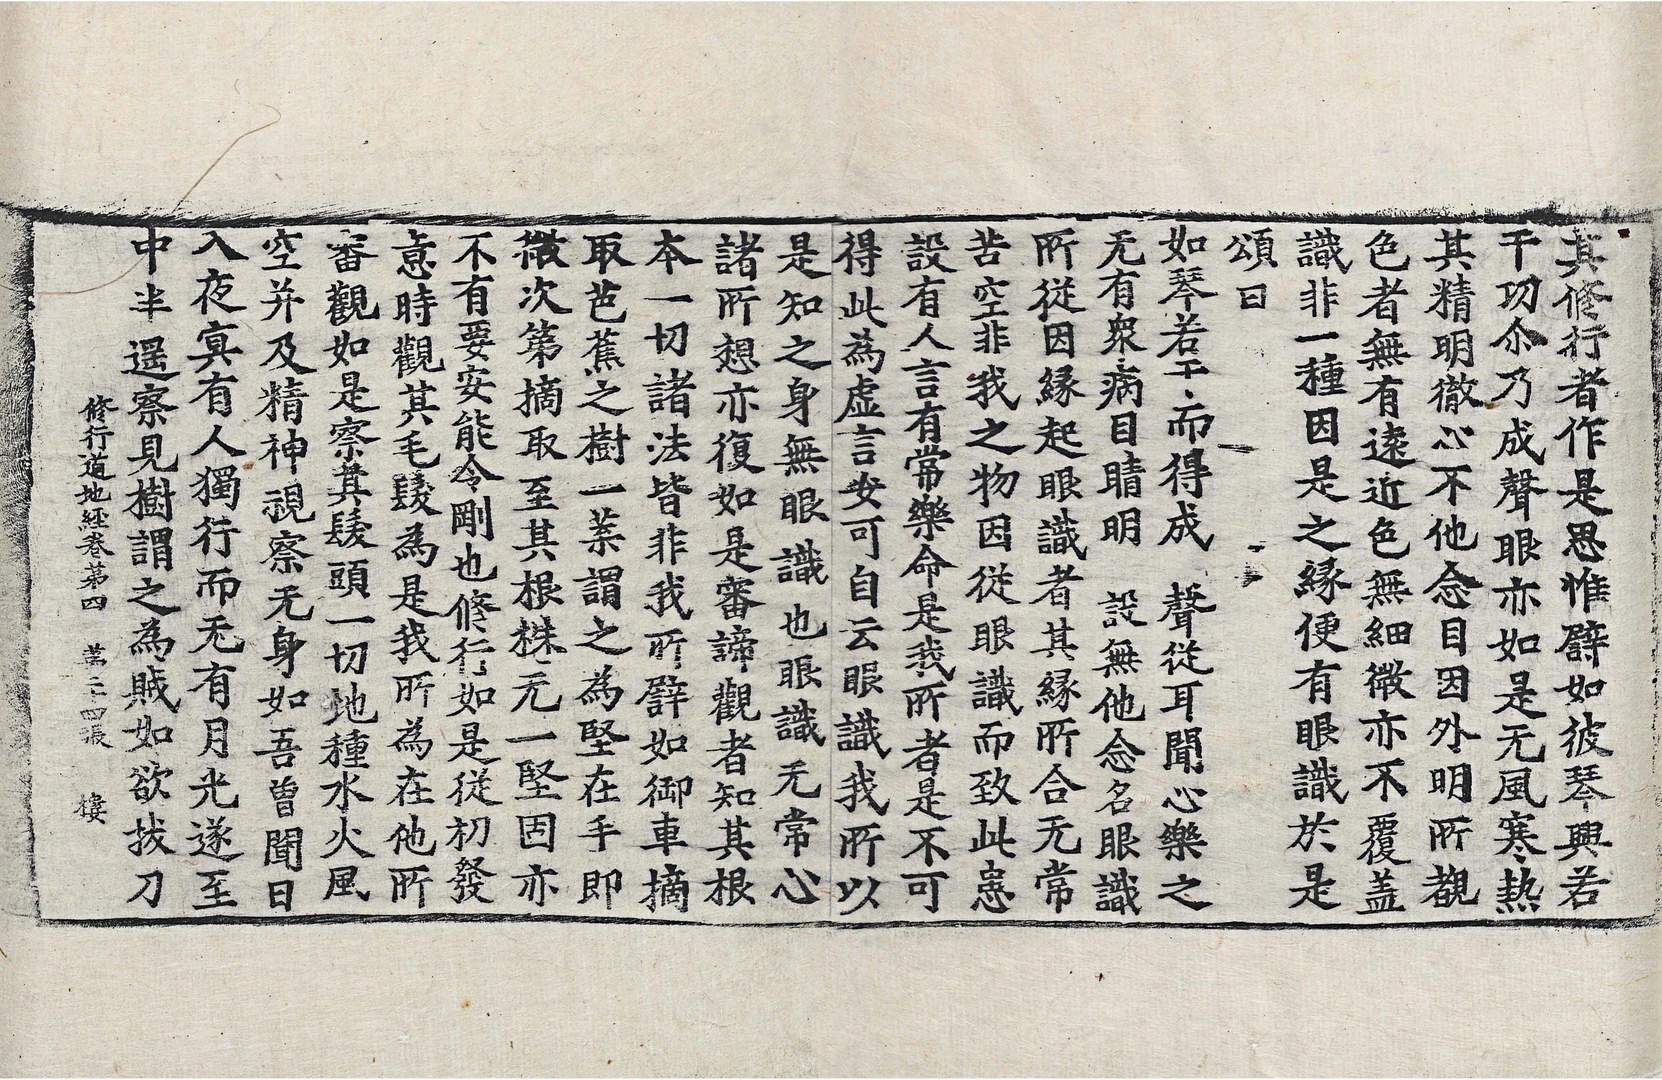 其修行者作是思惟譬如彼琴興若
干功尒乃成聲眼亦如是无風寒熱
其精明徹心不他念目因外明所覩
色者無有逺近色無細微亦不覆盖
識非一種因是之緣便有眼識於是
頌曰
如琴若干而得成　聲從耳聞心樂之
无有衆病目睛明　設無他念名眼識
所從因緣起眼識者其緣所合无常
苦空非我之物因從眼識而致此患
設有人言有常樂命是我所者是不可
得此為虛言安可自云眼識我所以
是知之身無眼識也眼識无常心
諸所想亦復如是審諦觀者知其根
本一切諸法皆非我所譬如御車摘
取芭蕉之樹一葉謂之為堅在手即
微次第摘取至其根株无一堅固亦
不有要安能令剛也修行如是從初發
意時觀其毛髮為是我所為在他所
審觀如是察其髮頭一切地種水火風
空并及精神視察无身如吾曾聞日
入夜㝠有人獨行而无有月光遂至
中半遥察見樹謂之為賊如欲拔刀
修行道地經卷第四　第二四張　樓